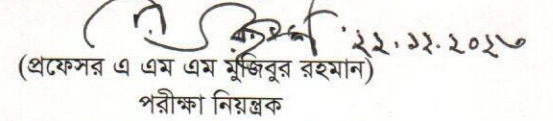 ২২.১২.২০১৩
(প্রফেসর এ এম এম মুজিবুর রহমান)
পরীক্ষা নিয়ন্ত্রক